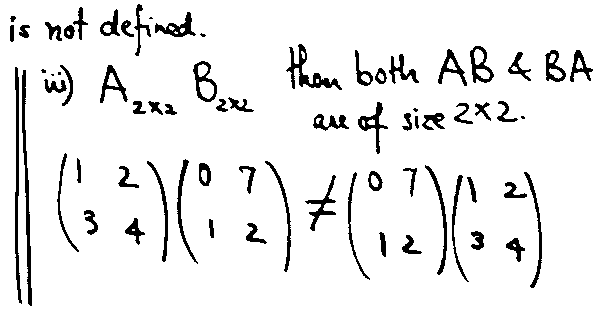 is not defined.
iii) A₂ₓ₂ B₂ₓ₂ then both AB & BA
are of size 2×2.
(1 2 (0 7 ≠ (0 7 (1 2
3 4) 1 2) 1 2) 3 4)